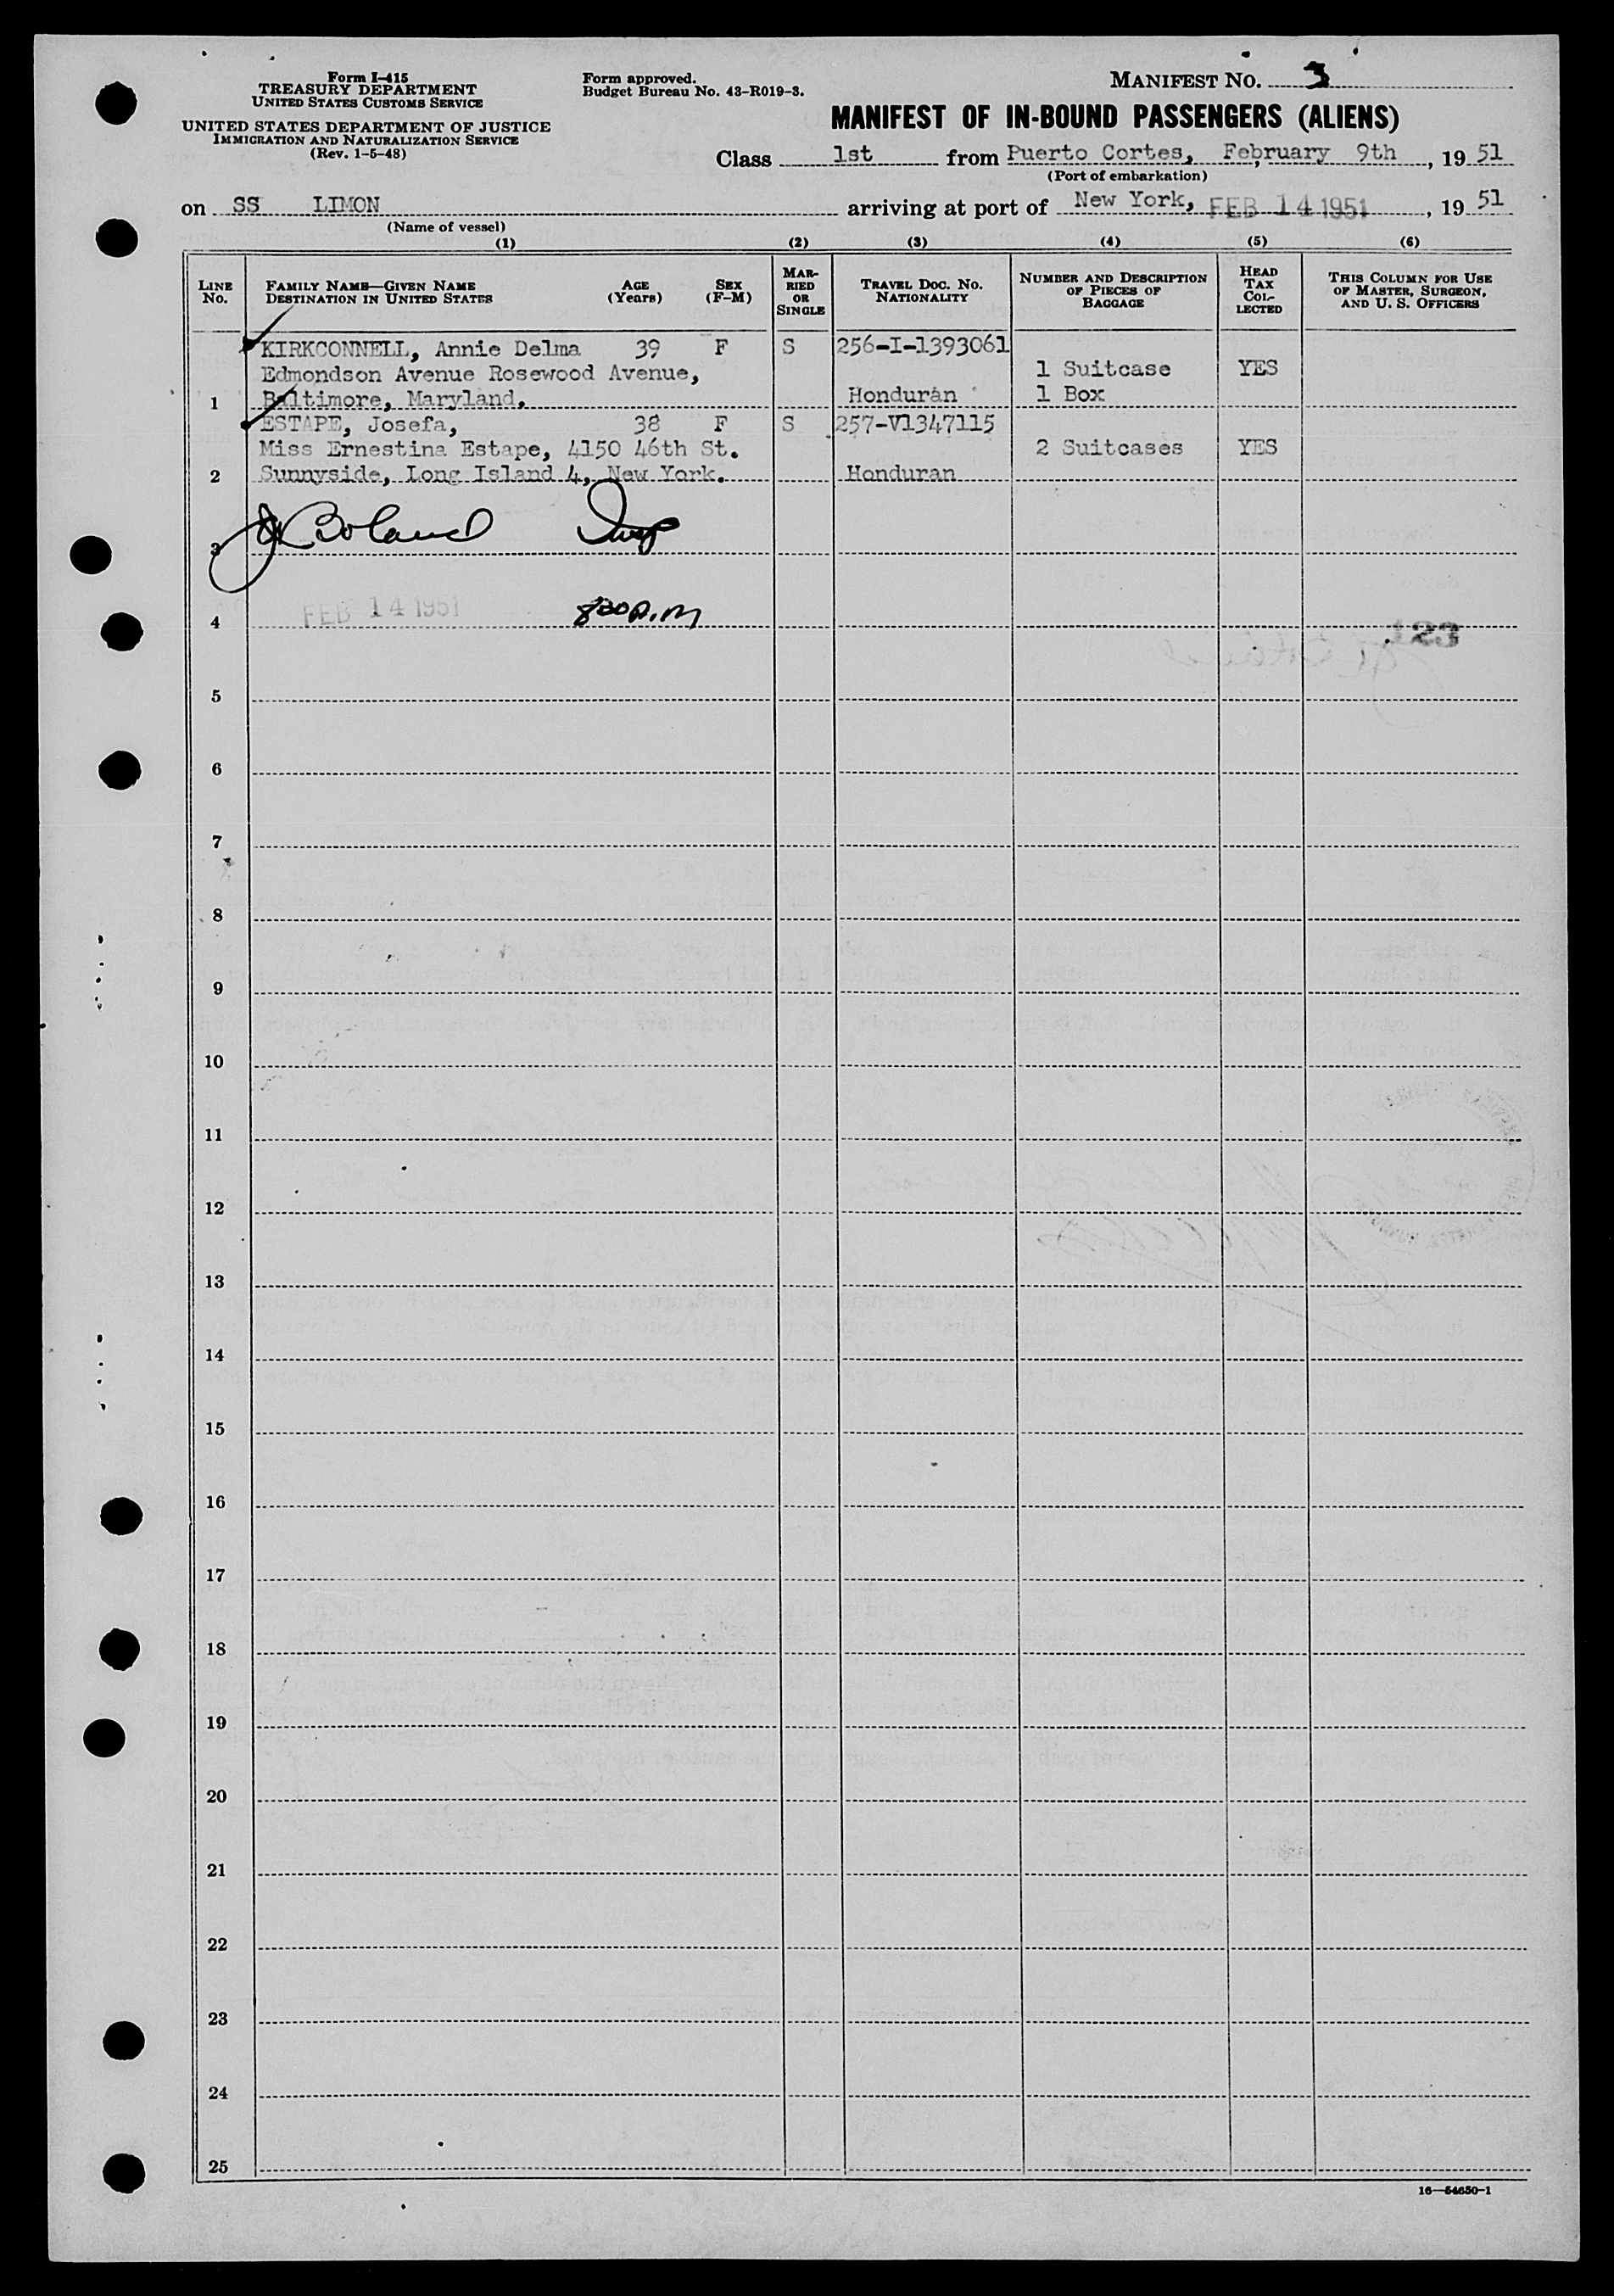 Form I-415
TREASURY DEPARTMENT
UNITED STATES CUSTOMS SERVICE
UNITED STATES DEPARTMENT OF JUSTICE
IMMIGRATION AND NATURALIZATION SERVICE
(Rev. 1-5-48)
Form approved.
Budget Bureau No. 43-R019-3.
MANIFEST NO. 3
MANIFEST OF IN-BOUND PASSENGERS (ALIENS)
Class 1st from Puerto Cortes, February 9th, 19 51
(Port of embarkation)
on SS LIMON arriving at port of New York, FEB 14 1951, 19 51
(Name of vessel)
(1) (2) (3) (4) (5) (6)
LINE No. FAMILY NAME—GIVEN NAME DESTINATION IN UNITED STATES AGE (Years) SEX (F-M) MARRIED OR SINGLE TRAVEL DOC. NO. NATIONALITY NUMBER AND DESCRIPTION OF PIECES OF BAGGAGE HEAD TAX COLLECTED THIS COLUMN FOR USE OF MASTER, SURGEON, AND U. S. OFFICERS
KIRKCONNELL, Annie Delma 39 F S 256-I-1393061
Edmondson Avenue Rosewood Avenue, 1 Suitcase YES
1 Baltimore, Maryland. Honduran 1 Box
ESTAPE, Josefa, 38 F S 257-V1347115
Miss Ernestina Estape, 4150 46th St. 2 Suitcases YES
2 Sunnyside, Long Island 4, New York. Honduran
3 Boland Insp
4 FEB 14 1951 8:00 A.M 123
5
6
7
8
9
10
11
12
13
14
15
16
17
18
19
20
21
22
23
24
25
16—54650-1